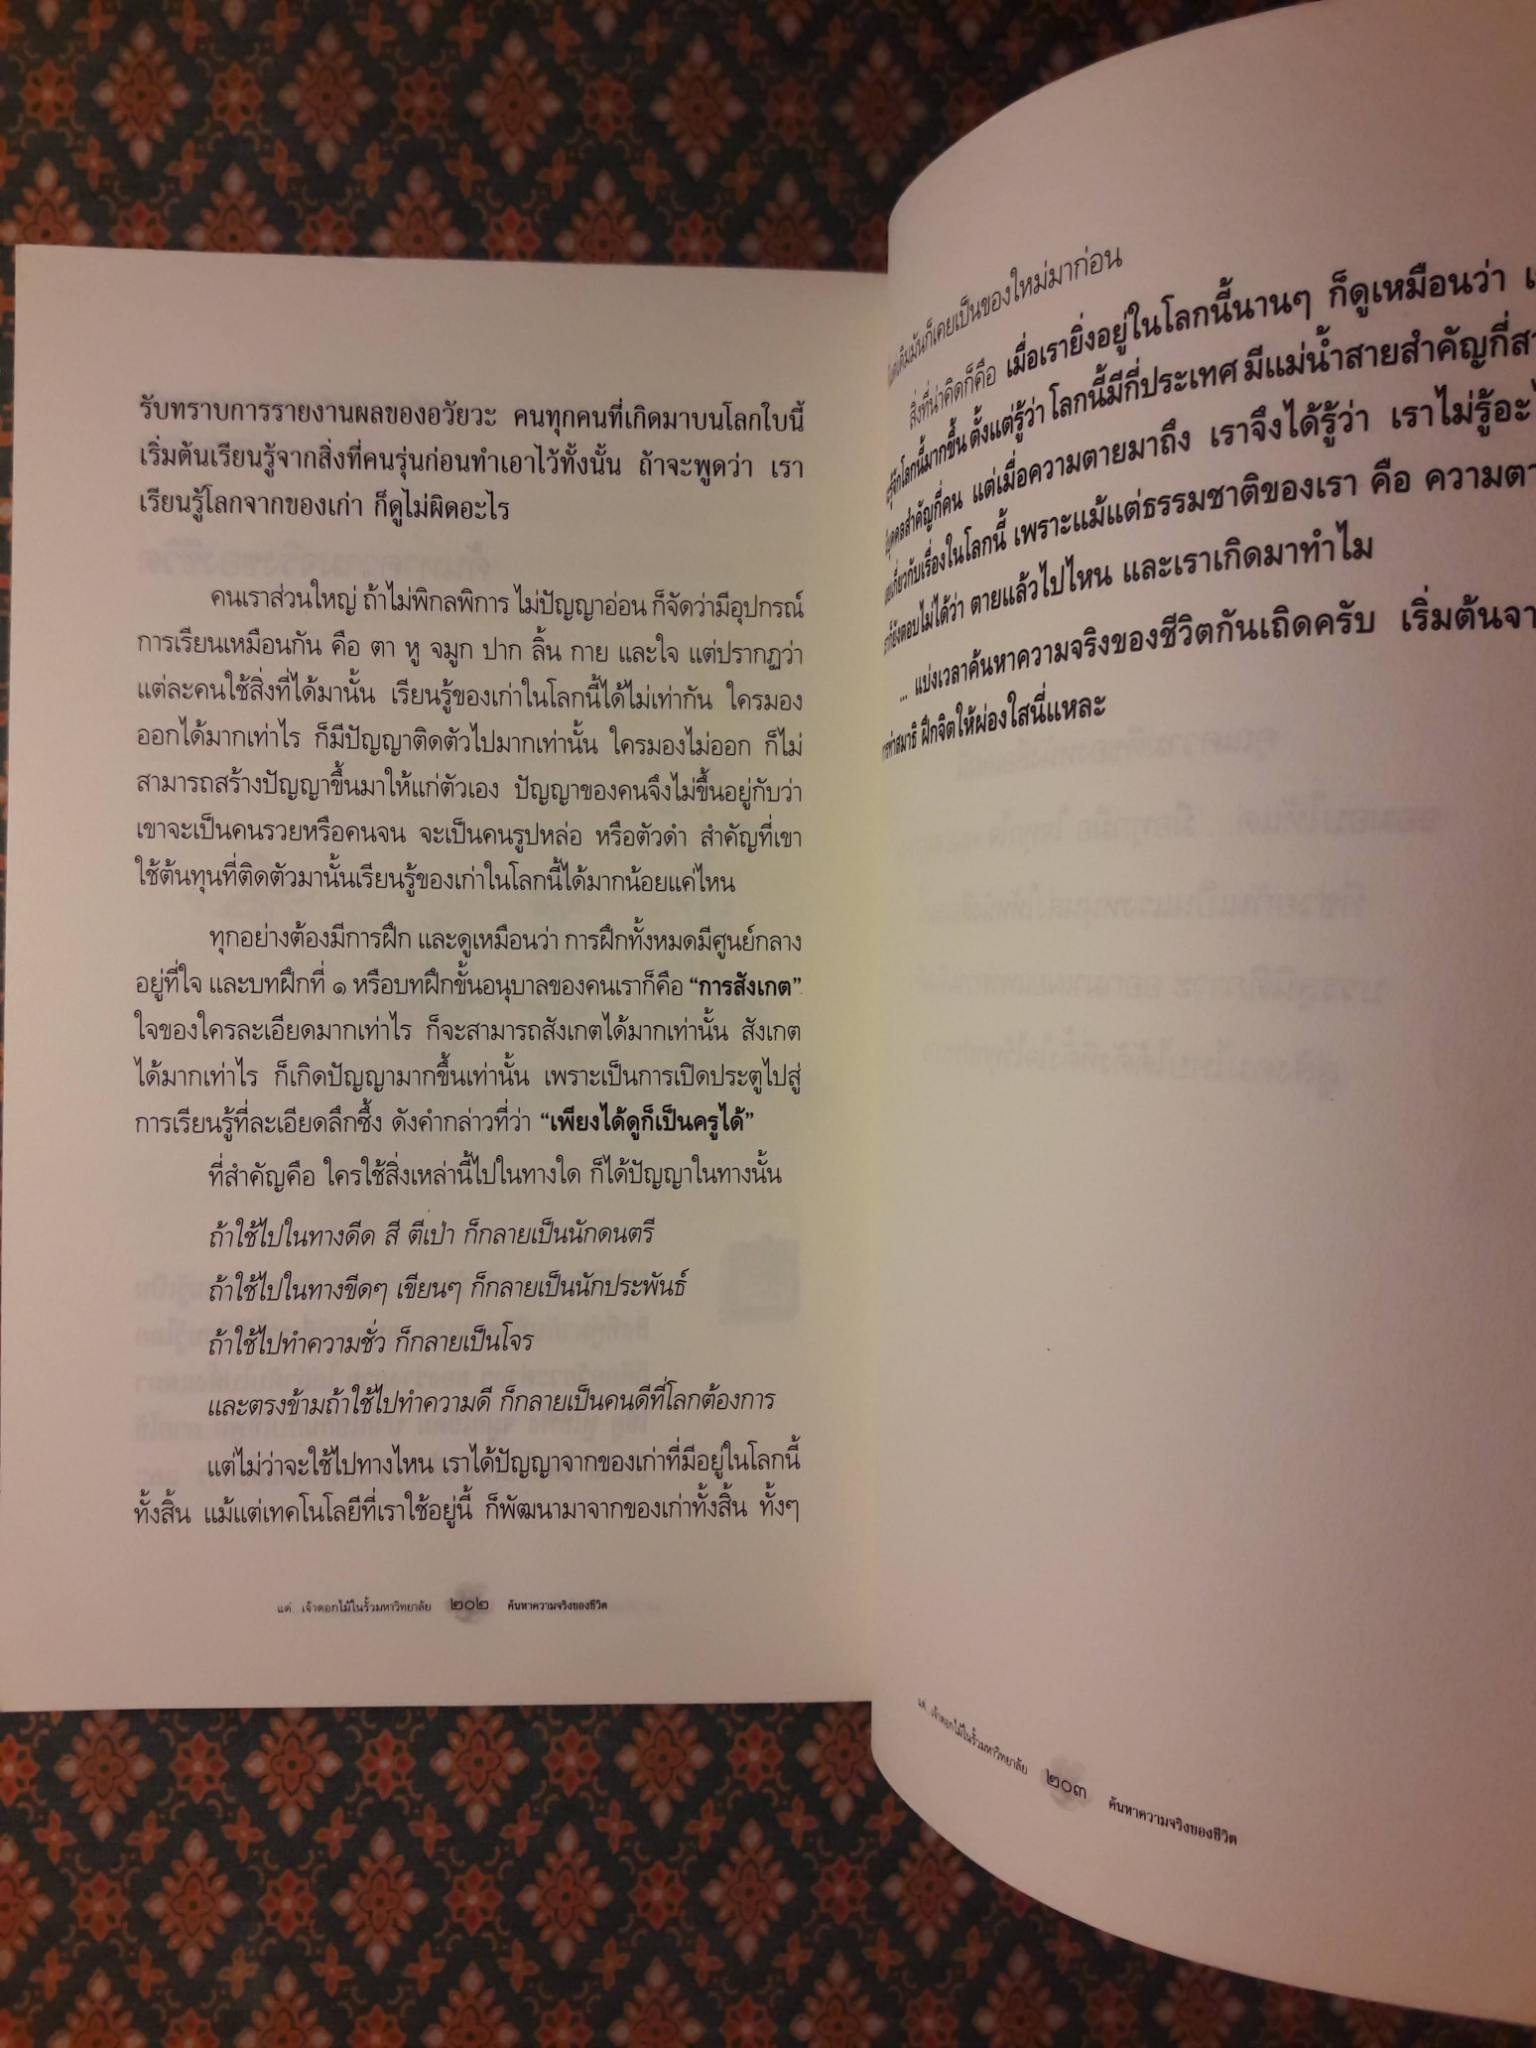 รับทราบการรายงานผลของอวัยวะ คนทุกคนที่เกิดมาบนโลกใบนี้
เริ่มต้นเรียนรู้จากสิ่งที่คนรุ่นก่อนทำเอาไว้ทั้งนั้น ถ้าจะพูดว่า เรา
เรียนรู้โลกจากของเก่า ก็ดูไม่ผิดอะไร
คนเราส่วนใหญ่ ถ้าไม่พิกลพิการ ไม่ปัญญาอ่อน ก็จัดว่ามีอุปกรณ์
การเรียนเหมือนกัน คือ ตา หู จมูก ปาก ลิ้น กาย และใจ แต่ปรากฏว่า
แต่ละคนใช้สิ่งที่ได้มานั้น เรียนรู้ของเก่าในโลกนี้ได้ไม่เท่ากัน ใครมอง
ออกได้มากเท่าไร ก็มีปัญญาติดตัวไปมากเท่านั้น ใครมองไม่ออก ก็ไม่
สามารถสร้างปัญญาขึ้นมาให้แก่ตัวเอง ปัญญาของคนจึงไม่ขึ้นอยู่กับว่า
เขาจะเป็นคนรวยหรือคนจน จะเป็นคนรูปหล่อ หรือตัวดำ สำคัญที่เขา
ใช้ต้นทุนที่ติดตัวมานั้นเรียนรู้ของเก่าในโลกนี้ได้มากน้อยแค่ไหน
ทุกอย่างต้องมีการฝึก และดูเหมือนว่า การฝึกทั้งหมดมีศูนย์กลาง
อยู่ที่ใจ และบทฝึกที่ ๑ หรือบทฝึกขั้นอนุบาลของคนเราก็คือ “การสังเกต”
ใจของใครละเอียดมากเท่าไร ก็จะสามารถสังเกตได้มากเท่านั้น สังเกต
ได้มากเท่าไร ก็เกิดปัญญามากขึ้นเท่านั้น เพราะเป็นการเปิดประตูไปสู่
การเรียนรู้ที่ละเอียดลึกซึ้ง ดังคำกล่าวที่ว่า “เพียงได้ดูก็เป็นครูได้”
ที่สำคัญคือ ใครใช้สิ่งเหล่านี้ไปในทางใด ก็ได้ปัญญาในทางนั้น
ถ้าใช้ไปในทางดีด สี ตีเป่า ก็กลายเป็นนักดนตรี
ถ้าใช้ไปในทางขีดๆ เขียนๆ ก็กลายเป็นนักประพันธ์
ถ้าใช้ไปทำความชั่ว ก็กลายเป็นโจร
และตรงข้ามถ้าใช้ไปทำความดี ก็กลายเป็นคนดีที่โลกต้องการ
แต่ไม่ว่าจะใช้ไปทางไหน เราได้ปัญญาจากของเก่าที่มีอยู่ในโลกนี้
ทั้งสิ้น แม้แต่เทคโนโลยีที่เราใช้อยู่นี้ ก็พัฒนามาจากของเก่าทั้งสิ้น ทั้งๆ
แด่...เจ้าดอกไม้ในรั้วมหาวิทยาลัย ๒๐๒ ค้นหาความจริงของชีวิต
เดิมมันก็เคยเป็นของใหม่มาก่อน
สิ่งที่น่าคิดก็คือ เมื่อเรายิ่งอยู่ในโลกนี้นานๆ ก็ดูเหมือนว่า
รู้จักโลกนี้มากขึ้น ตั้งแต่รู้ว่า โลกนี้มีกี่ประเทศ มีแม่น้ำสายสำคัญกี่
บุคคลสำคัญกี่คน แต่เมื่อความตายมาถึง เราจึงได้รู้ว่า เราไม่รู้
เกี่ยวกับเรื่องในโลกนี้ เพราะแม้แต่ธรรมชาติของเรา คือ
ก็ยังตอบไม่ได้ว่า ตายแล้วไปไหน และเราเกิดมาทำไม
... แบ่งเวลาค้นหาความจริงของชีวิตกันเถิดครับ เริ่มต้น
การทำสมาธิ ฝึกจิตให้ผ่องใสนี่แหละ
แด่...เจ้าดอกไม้ในรั้วมหาวิทยาลัย ๒๐๓ ค้นหาความจริงของชีวิต